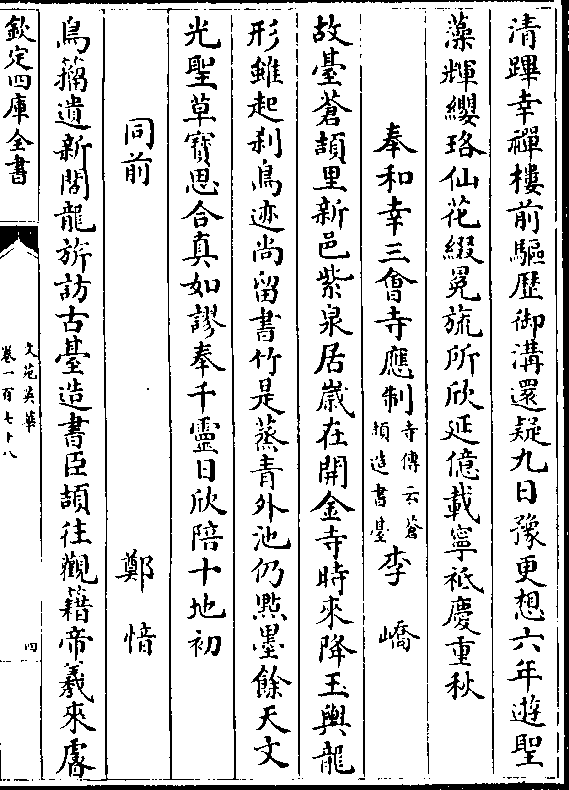 清蹕幸禪樓前驅歷御溝還疑九日豫更想六年遊聖
藻輝纓珞仙花綴冕旒所欣延億載寧祗慶重秋
奉和幸三會寺應制寺傳云蒼頡造書臺 李嶠
故臺蒼頡里新邑紫泉居歲在開金寺時來降玉輿龍
形雖起刹鳥迹尚留書竹是蒸青外池仍㸃墨餘天文
光聖草寶思合真如謬奉千靈日欣陪十地初
同前 鄭愔
鳥籀遺新閣龍旂訪古臺造書臣頡往觀籍帝羲來睿
欽定四庫全書
文苑英華
卷一百七十八
四